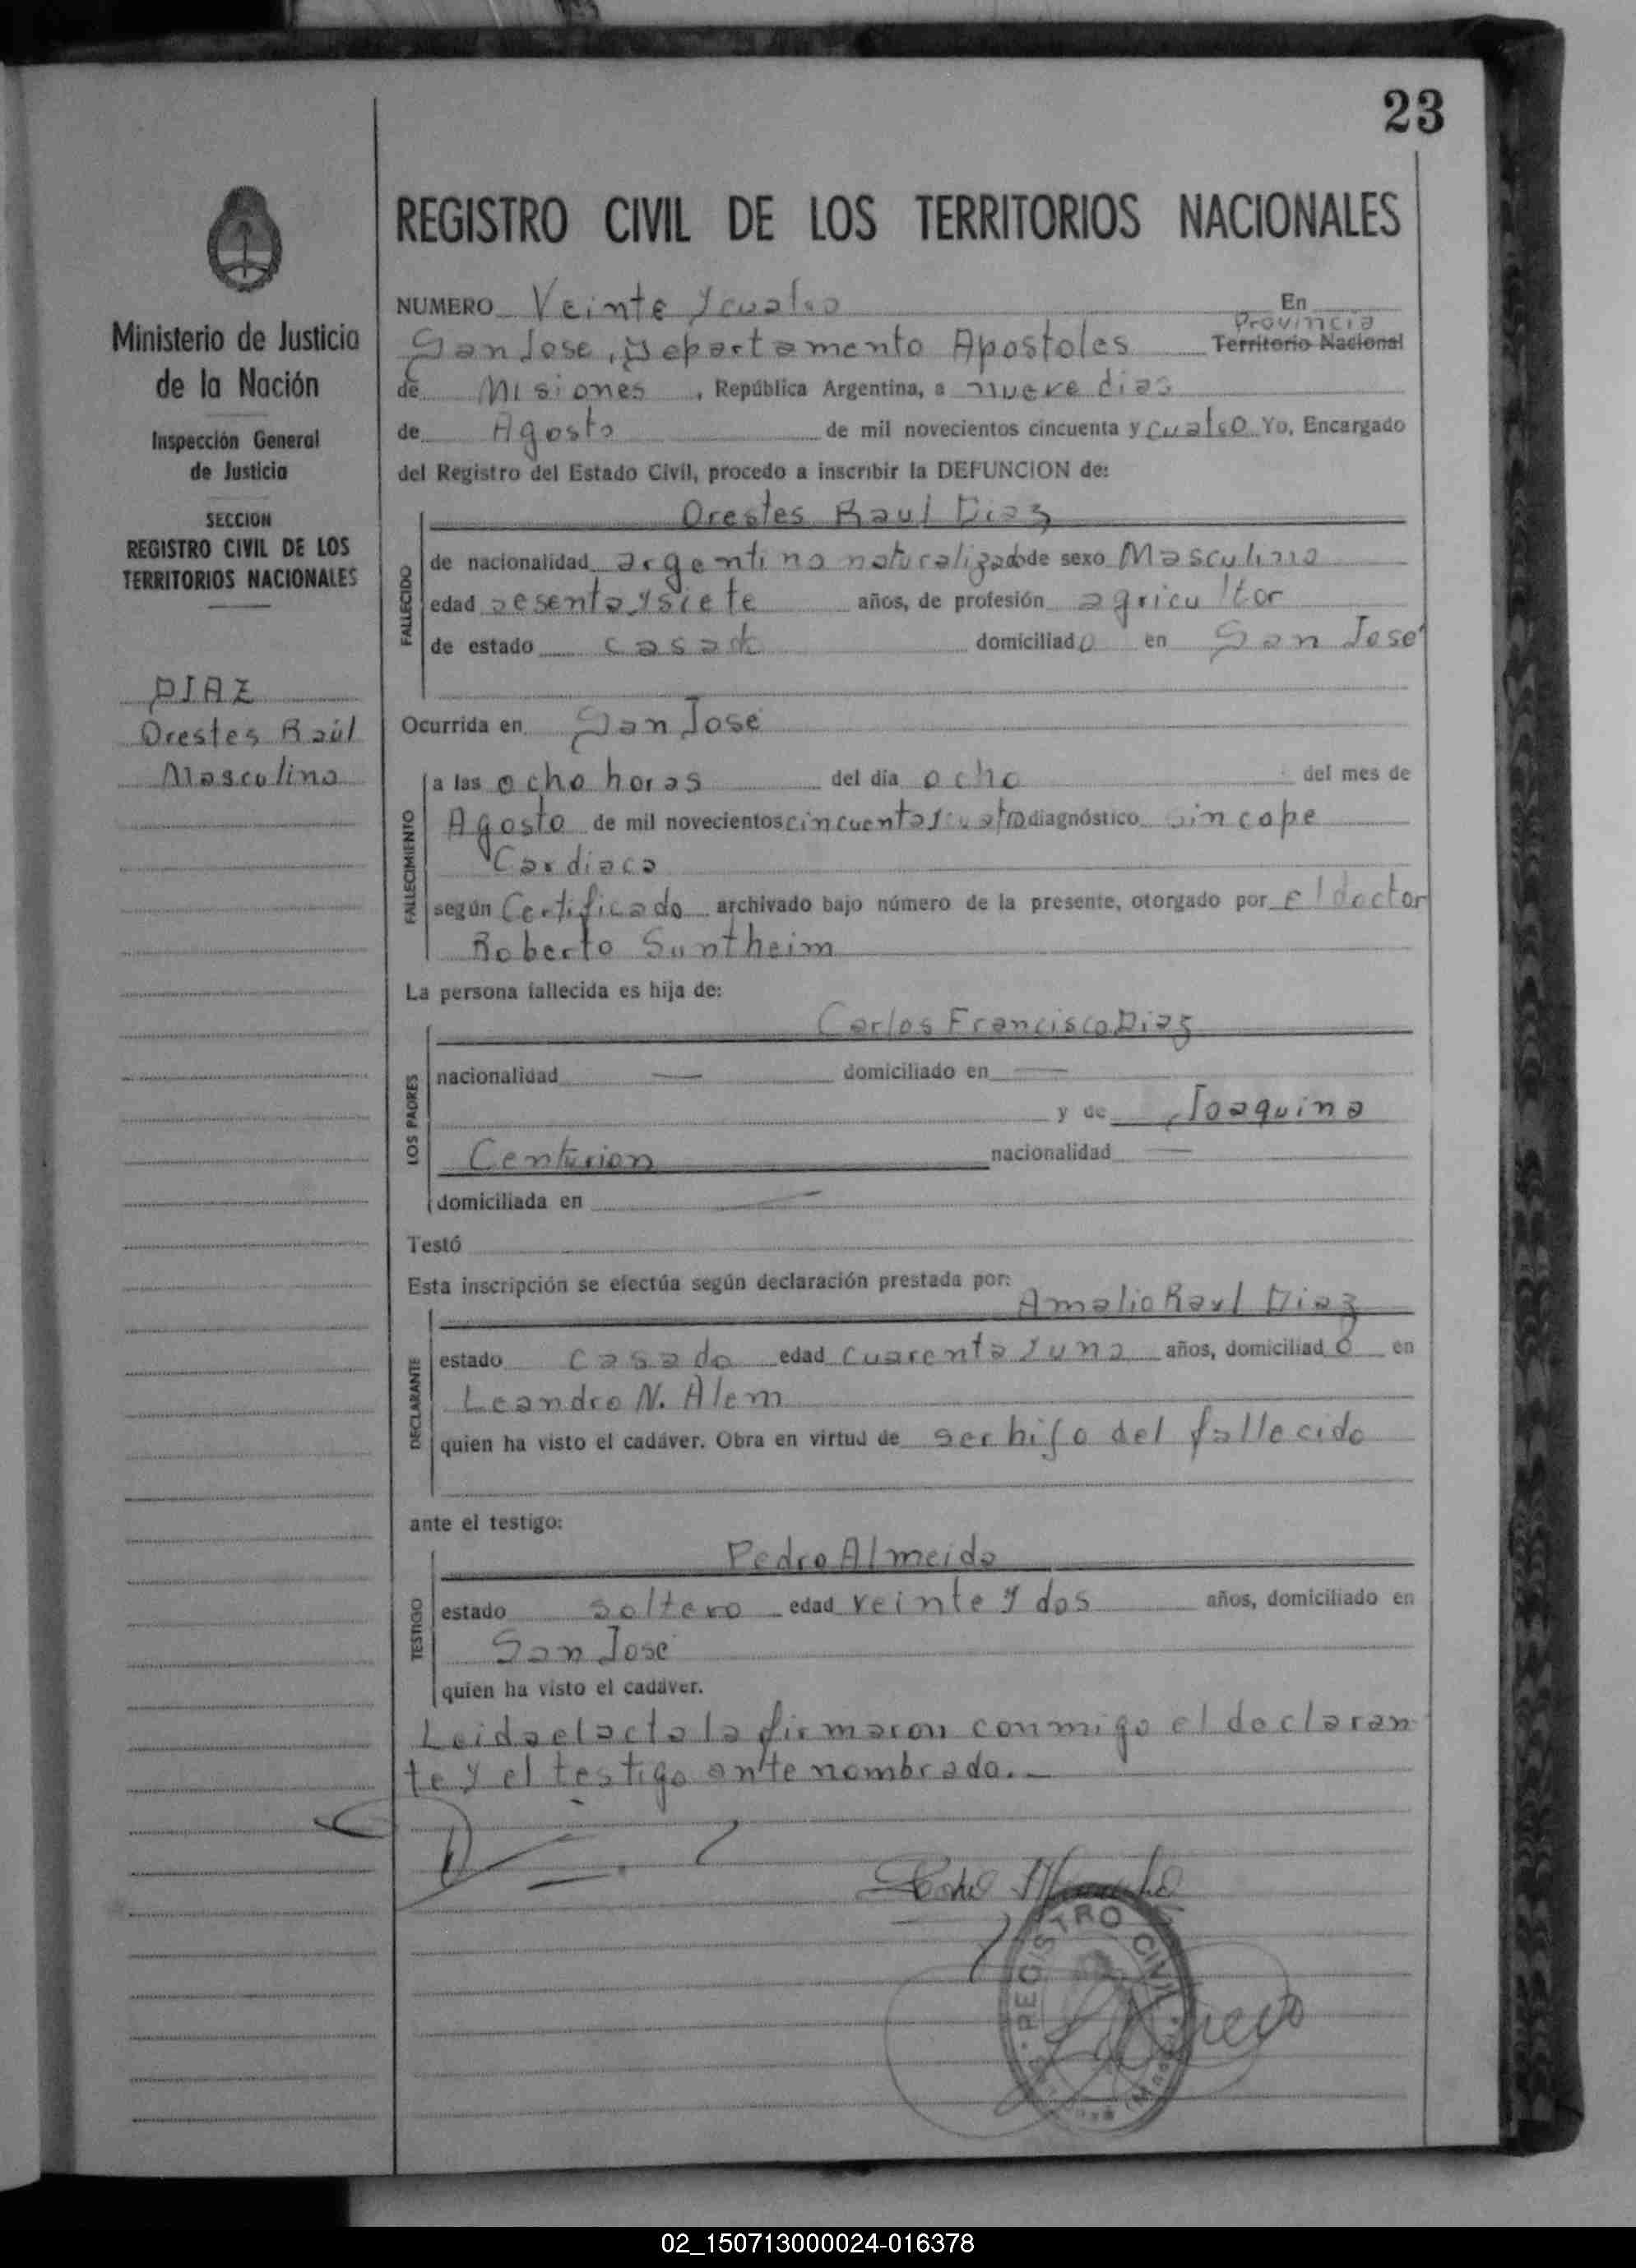 23
REGISTRO CIVIL DE LOS TERRITORIOS NACIONALES
Ministerio de Justicia
de la Nación
Inspección General
de Justicia
SECCION
REGISTRO CIVIL DE LOS
TERRITORIOS NACIONALES
DIAZ
Orestes Raúl
Masculino
NUMERO Veinte y cuatro En
San Jose, Departamento Apostoles Provincia Territorio Nacional
de Misiones, República Argentina, a nueve dias
de Agosto de mil novecientos cincuenta y cuatro Yo, Encargado
del Registro del Estado Civil, procedo a inscribir la DEFUNCION de:
Orestes Raul Diaz
FALLECIDO
de nacionalidad argentino naturalizado de sexo Masculino
edad sesenta y siete años, de profesión agricultor
de estado casado domiciliado en San José
Ocurrida en San Jose
FALLECIMIENTO
a las ocho horas del día ocho del mes de
Agosto de mil novecientos cincuenta y cuatro diagnóstico sincope
Cardiaca
según Certificado archivado bajo número de la presente, otorgado por el doctor
Roberto Suntheim
La persona fallecida es hija de:
Carlos Francisco Diaz
LOS PADRES
nacionalidad — domiciliado en —
y de Joaquina
Centurion nacionalidad —
domiciliada en —
Testó
Esta inscripción se efectúa según declaración prestada por:
Amalio Raul Diaz
DECLARANTE
estado casado edad cuarenta y uno años, domiciliado en
Leandro N. Alem
quien ha visto el cadáver. Obra en virtud de ser hijo del fallecido
ante el testigo:
Pedro Almeida
TESTIGO
estado soltero edad veinte y dos años, domiciliado en
San Jose
quien ha visto el cadáver.
Leida el acta la firmaron conmigo el declaran
te y el testigo ante nombrado.—
REGISTRO CIVIL
02_150713000024-016378